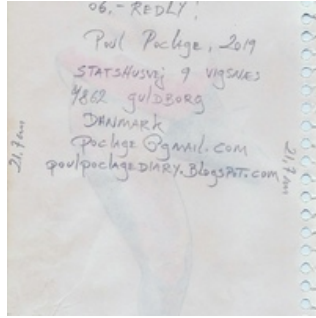 06.- REDLY!
Poul Poclage, 2019
STATSHUSVEJ 9 VIGSNÆS
4862 GULDBORG
DANMARK
poclage@gmail.com
poulpoclageDIARY.BlogSpot.com
21,7 cm
21,7 cm